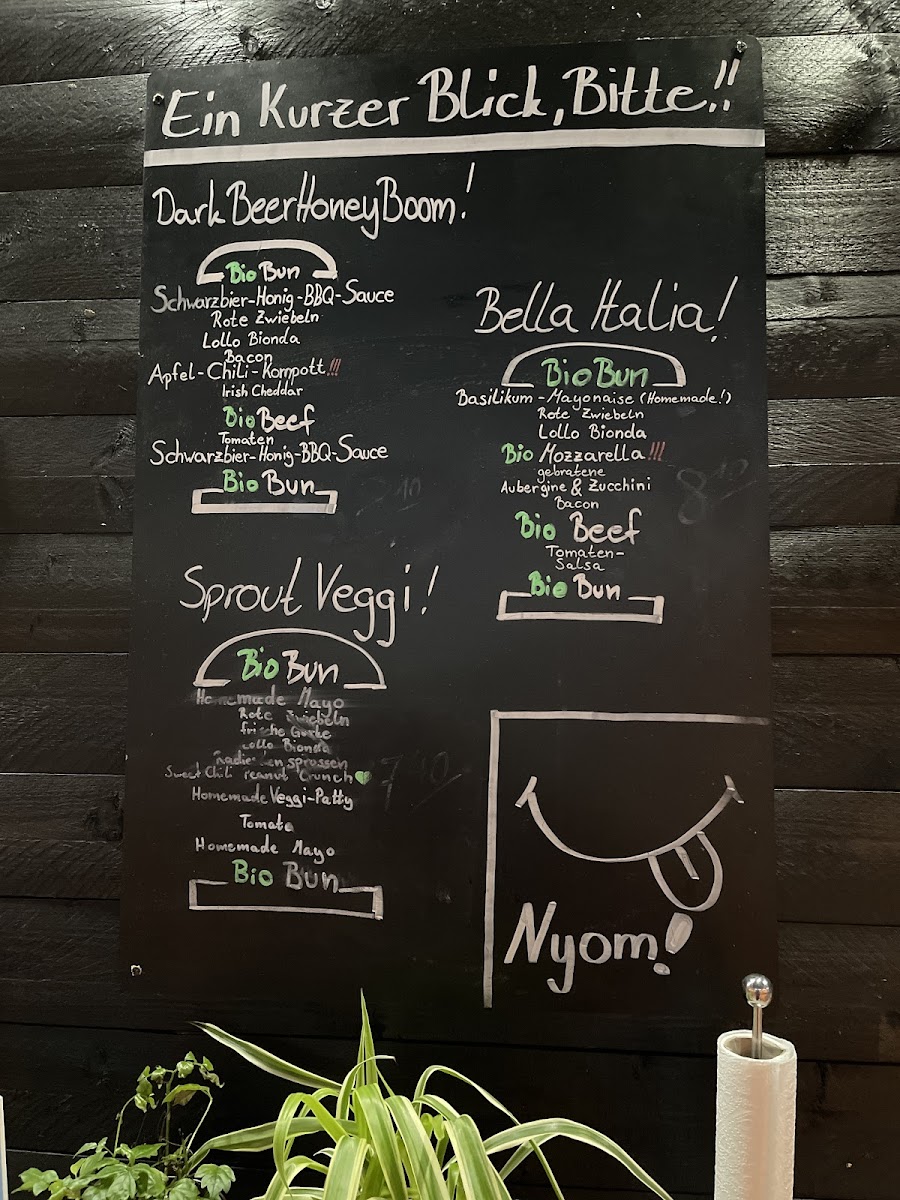 Ein Kurzer Blick, Bitte!!
Dark Beer Honey Boom!
Bio Bun
Schwarzbier-Honig-BBQ-Sauce
Rote Zwiebeln
Lollo Bionda
Bacon
Apfel-Chili-Kompott!!!
Irish Cheddar
Bio Beef
Tomaten
Schwarzbier-Honig-BBQ-Sauce
Bio Bun
Bella Italia!
Bio Bun
Basilikum-Mayonaise (Homemade!)
Rote Zwiebeln
Lollo Bionda
Bio Mozzarella!!!
gebratene
Aubergine & Zucchini
Bacon
Bio Beef
Tomaten-
Salsa
Bio Bun
Sprout Veggi!
Bio Bun
Homemade Mayo
Rote Zwiebeln
frische Gurke
Lollo Bionda
Sweet Chili Peanut Crunch
Homemade Veggi-Patty
Tomate
Homemade Mayo
Bio Bun
Nyom!